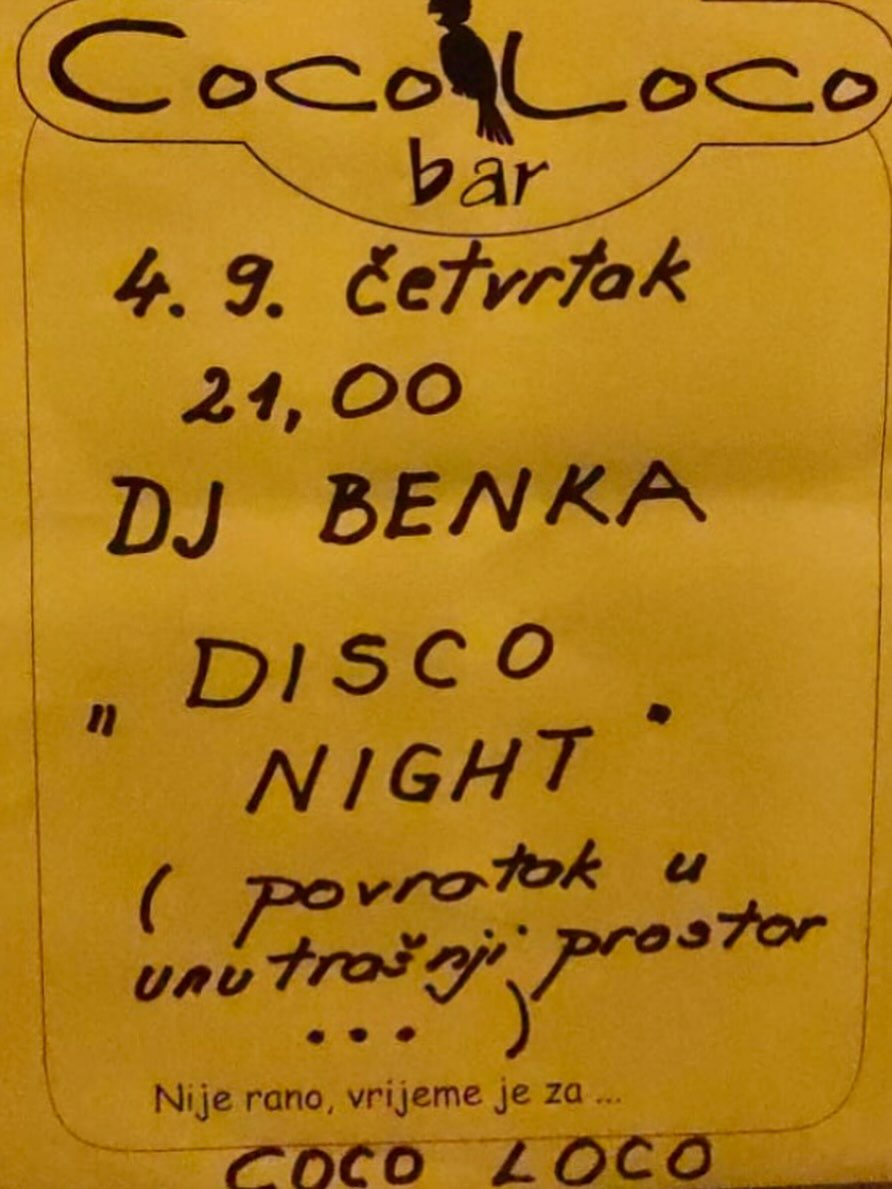 Coco Loco
bar
4. 9. četvrtak
21,00
DJ BENKA
" DISCO
NIGHT .
( povratak u
unutrašnji prostor
... )
Nije rano, vrijeme je za ...
COCO LOCO